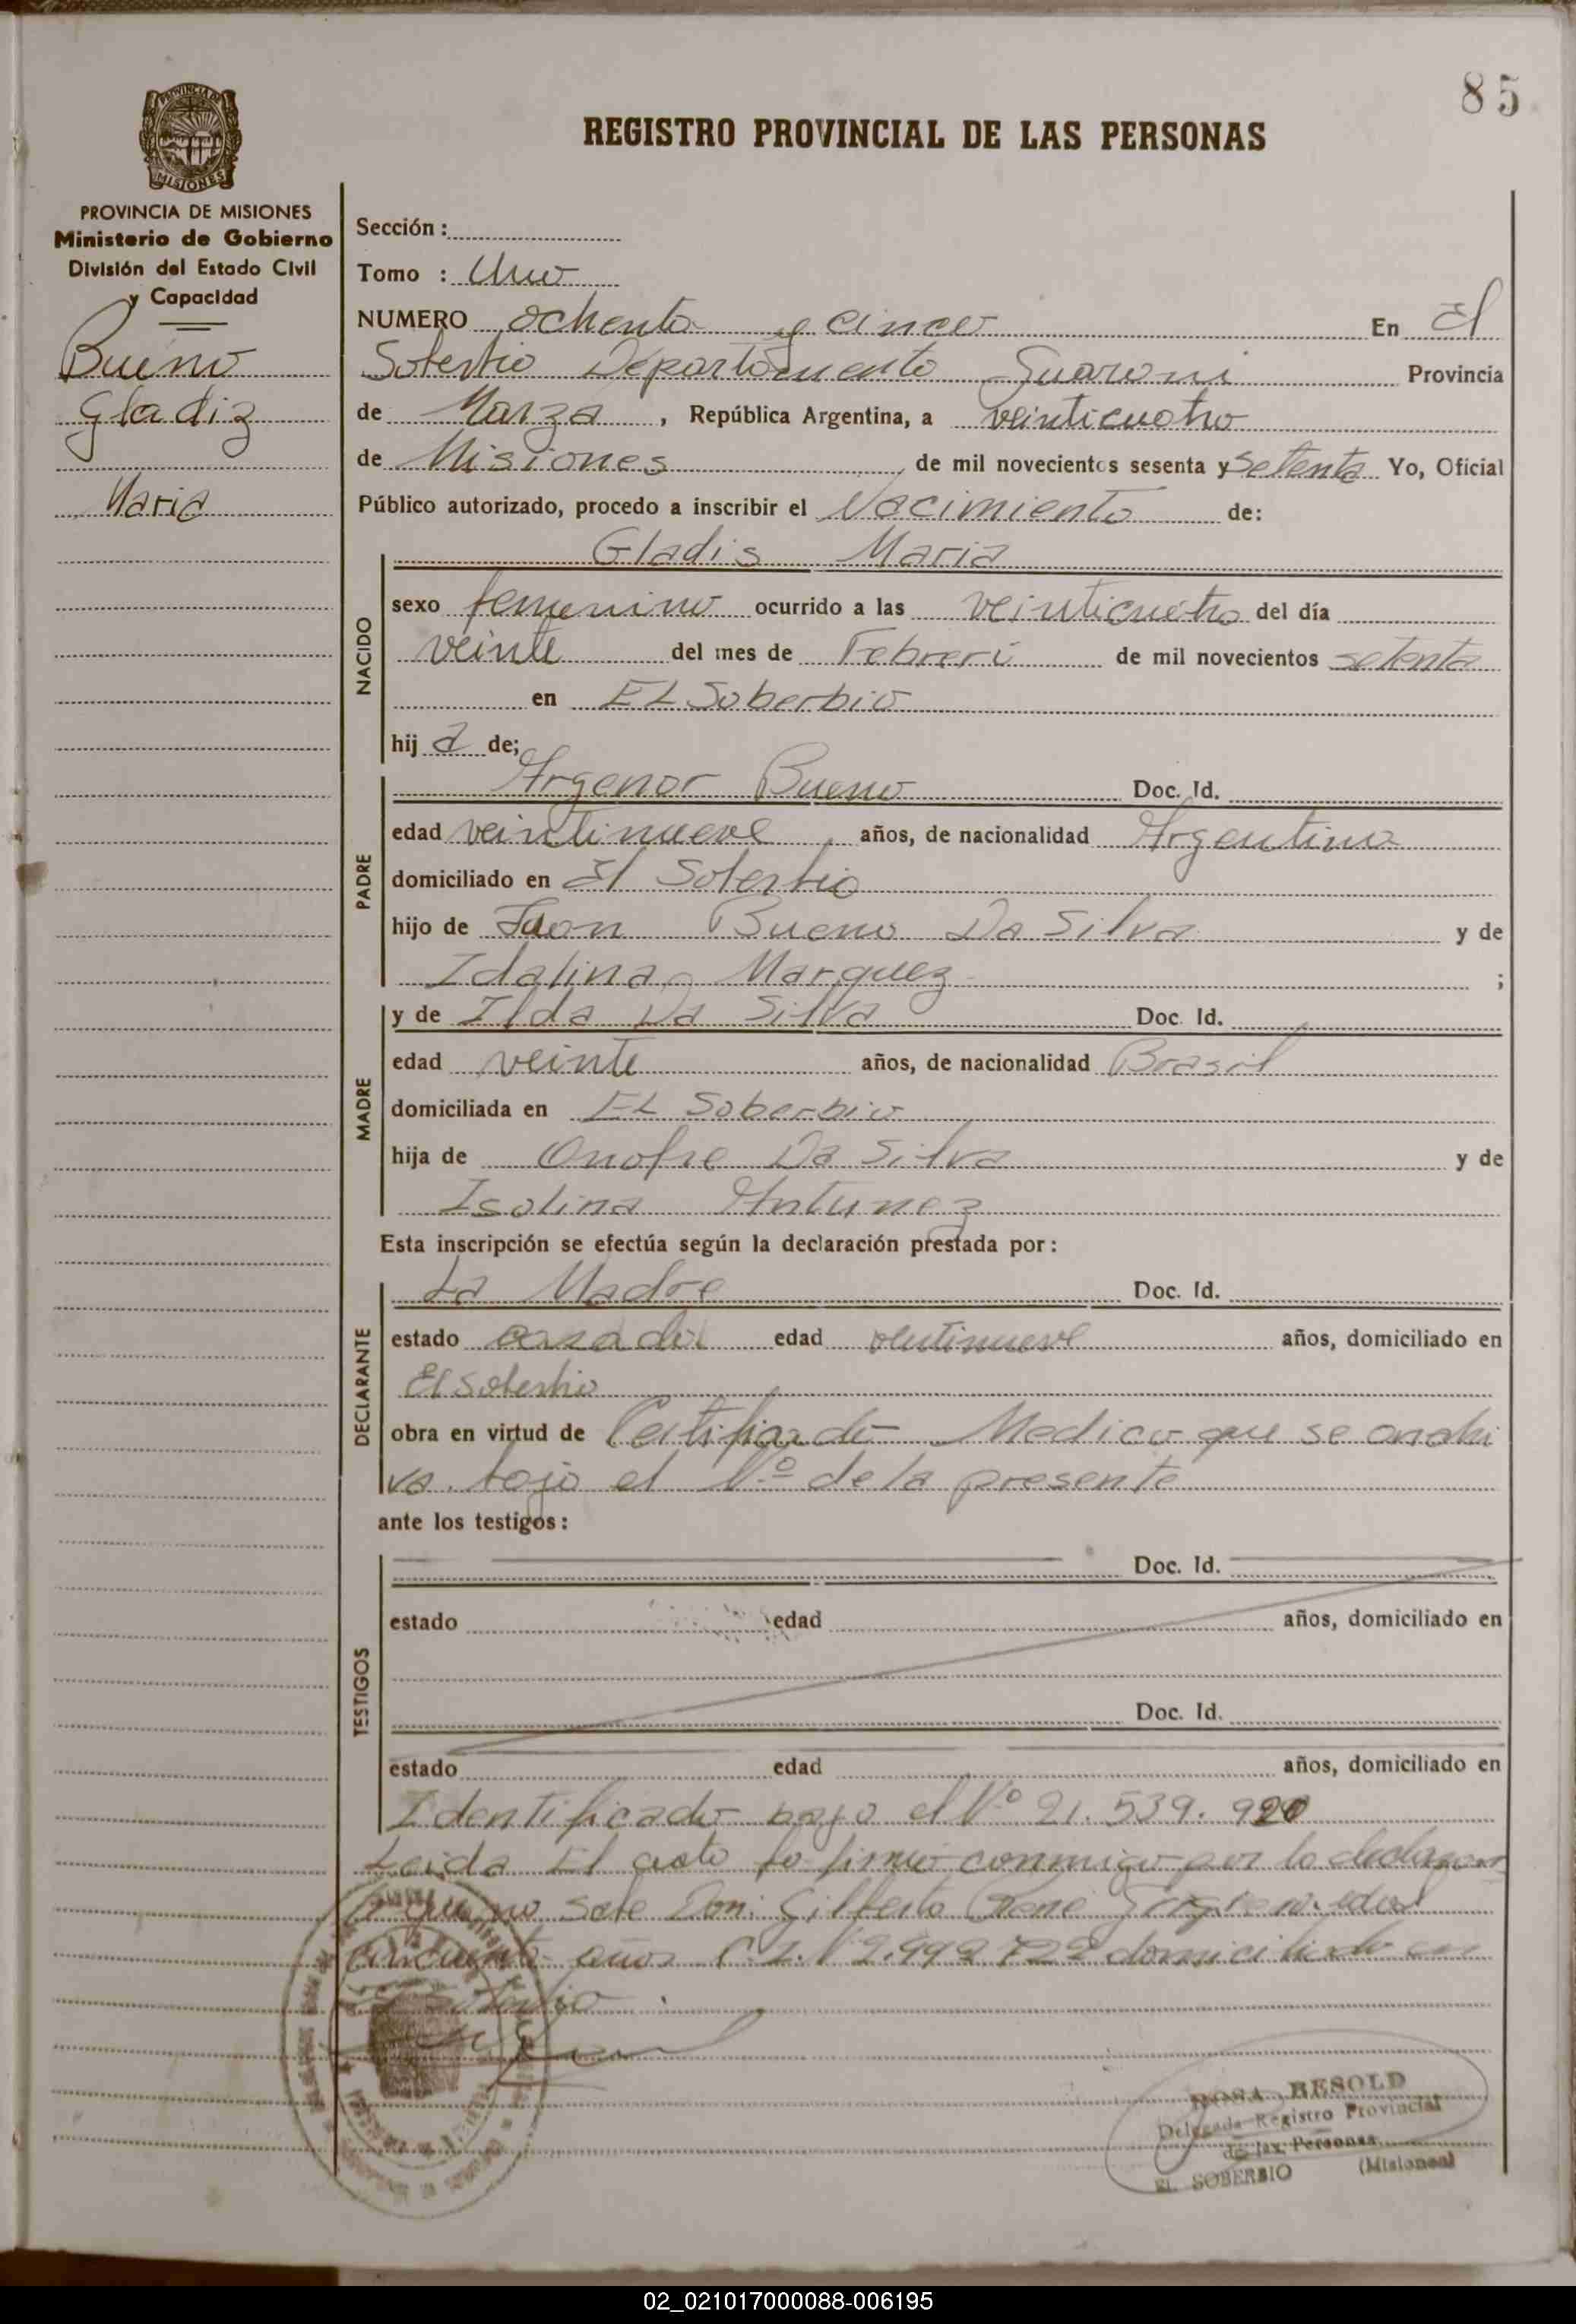 85
REGISTRO PROVINCIAL DE LAS PERSONAS
MISIONES
PROVINCIA DE MISIONES
Ministerio de Gobierno
División del Estado Civil
y Capacidad
Bueno
Gladiz
Maria
Sección :
Tomo : Uno
NUMERO ochenta y cinco En El
Soberbio Departamento Guarani Provincia
de Marzo , República Argentina, a veinticuatro
de Misiones , de mil novecientos sesenta y Setenta Yo, Oficial
Público autorizado, procedo a inscribir el Nacimiento de:
NACIDO
Gladis Maria
sexo femenino ocurrido a las veinticuatro del día
veinte del mes de Febrero de mil novecientos setenta
en EL Soberbio
hij a de;
PADRE
Argenor Bueno Doc. Id.
edad veintinueve años, de nacionalidad Argentina
domiciliado en El Soberbio
hijo de Juon Bueno Da Silva y de
Idalina Marquez ;
MADRE
y de Ilda Da Silva Doc. Id.
edad veinte años, de nacionalidad Brasil
domiciliada en EL Soberbio
hija de Onofre Da Silva y de
Isolina Antunez
Esta inscripción se efectúa según la declaración prestada por:
DECLARANTE
La Madre Doc. Id.
estado edad años, domiciliado en
El Soberbio
obra en virtud de Certificado Medico que se archi
va bajo el Nº de la presente
ante los testigos:
TESTIGOS
Doc. Id.
estado edad años, domiciliado en
Doc. Id.
estado edad años, domiciliado en
Identificado bajo el Nº 21.539.920
Leida El acta la firmo conmigo por la
que no sabe Don: Gilberto Rene edad
cincuenta años C.I. domiciliado en
Soberbio
ROSA RESOLD
Delegada Registro Provincial
de las Personas
EL SOBERBIO (Misiones)
02_021017000088-006195